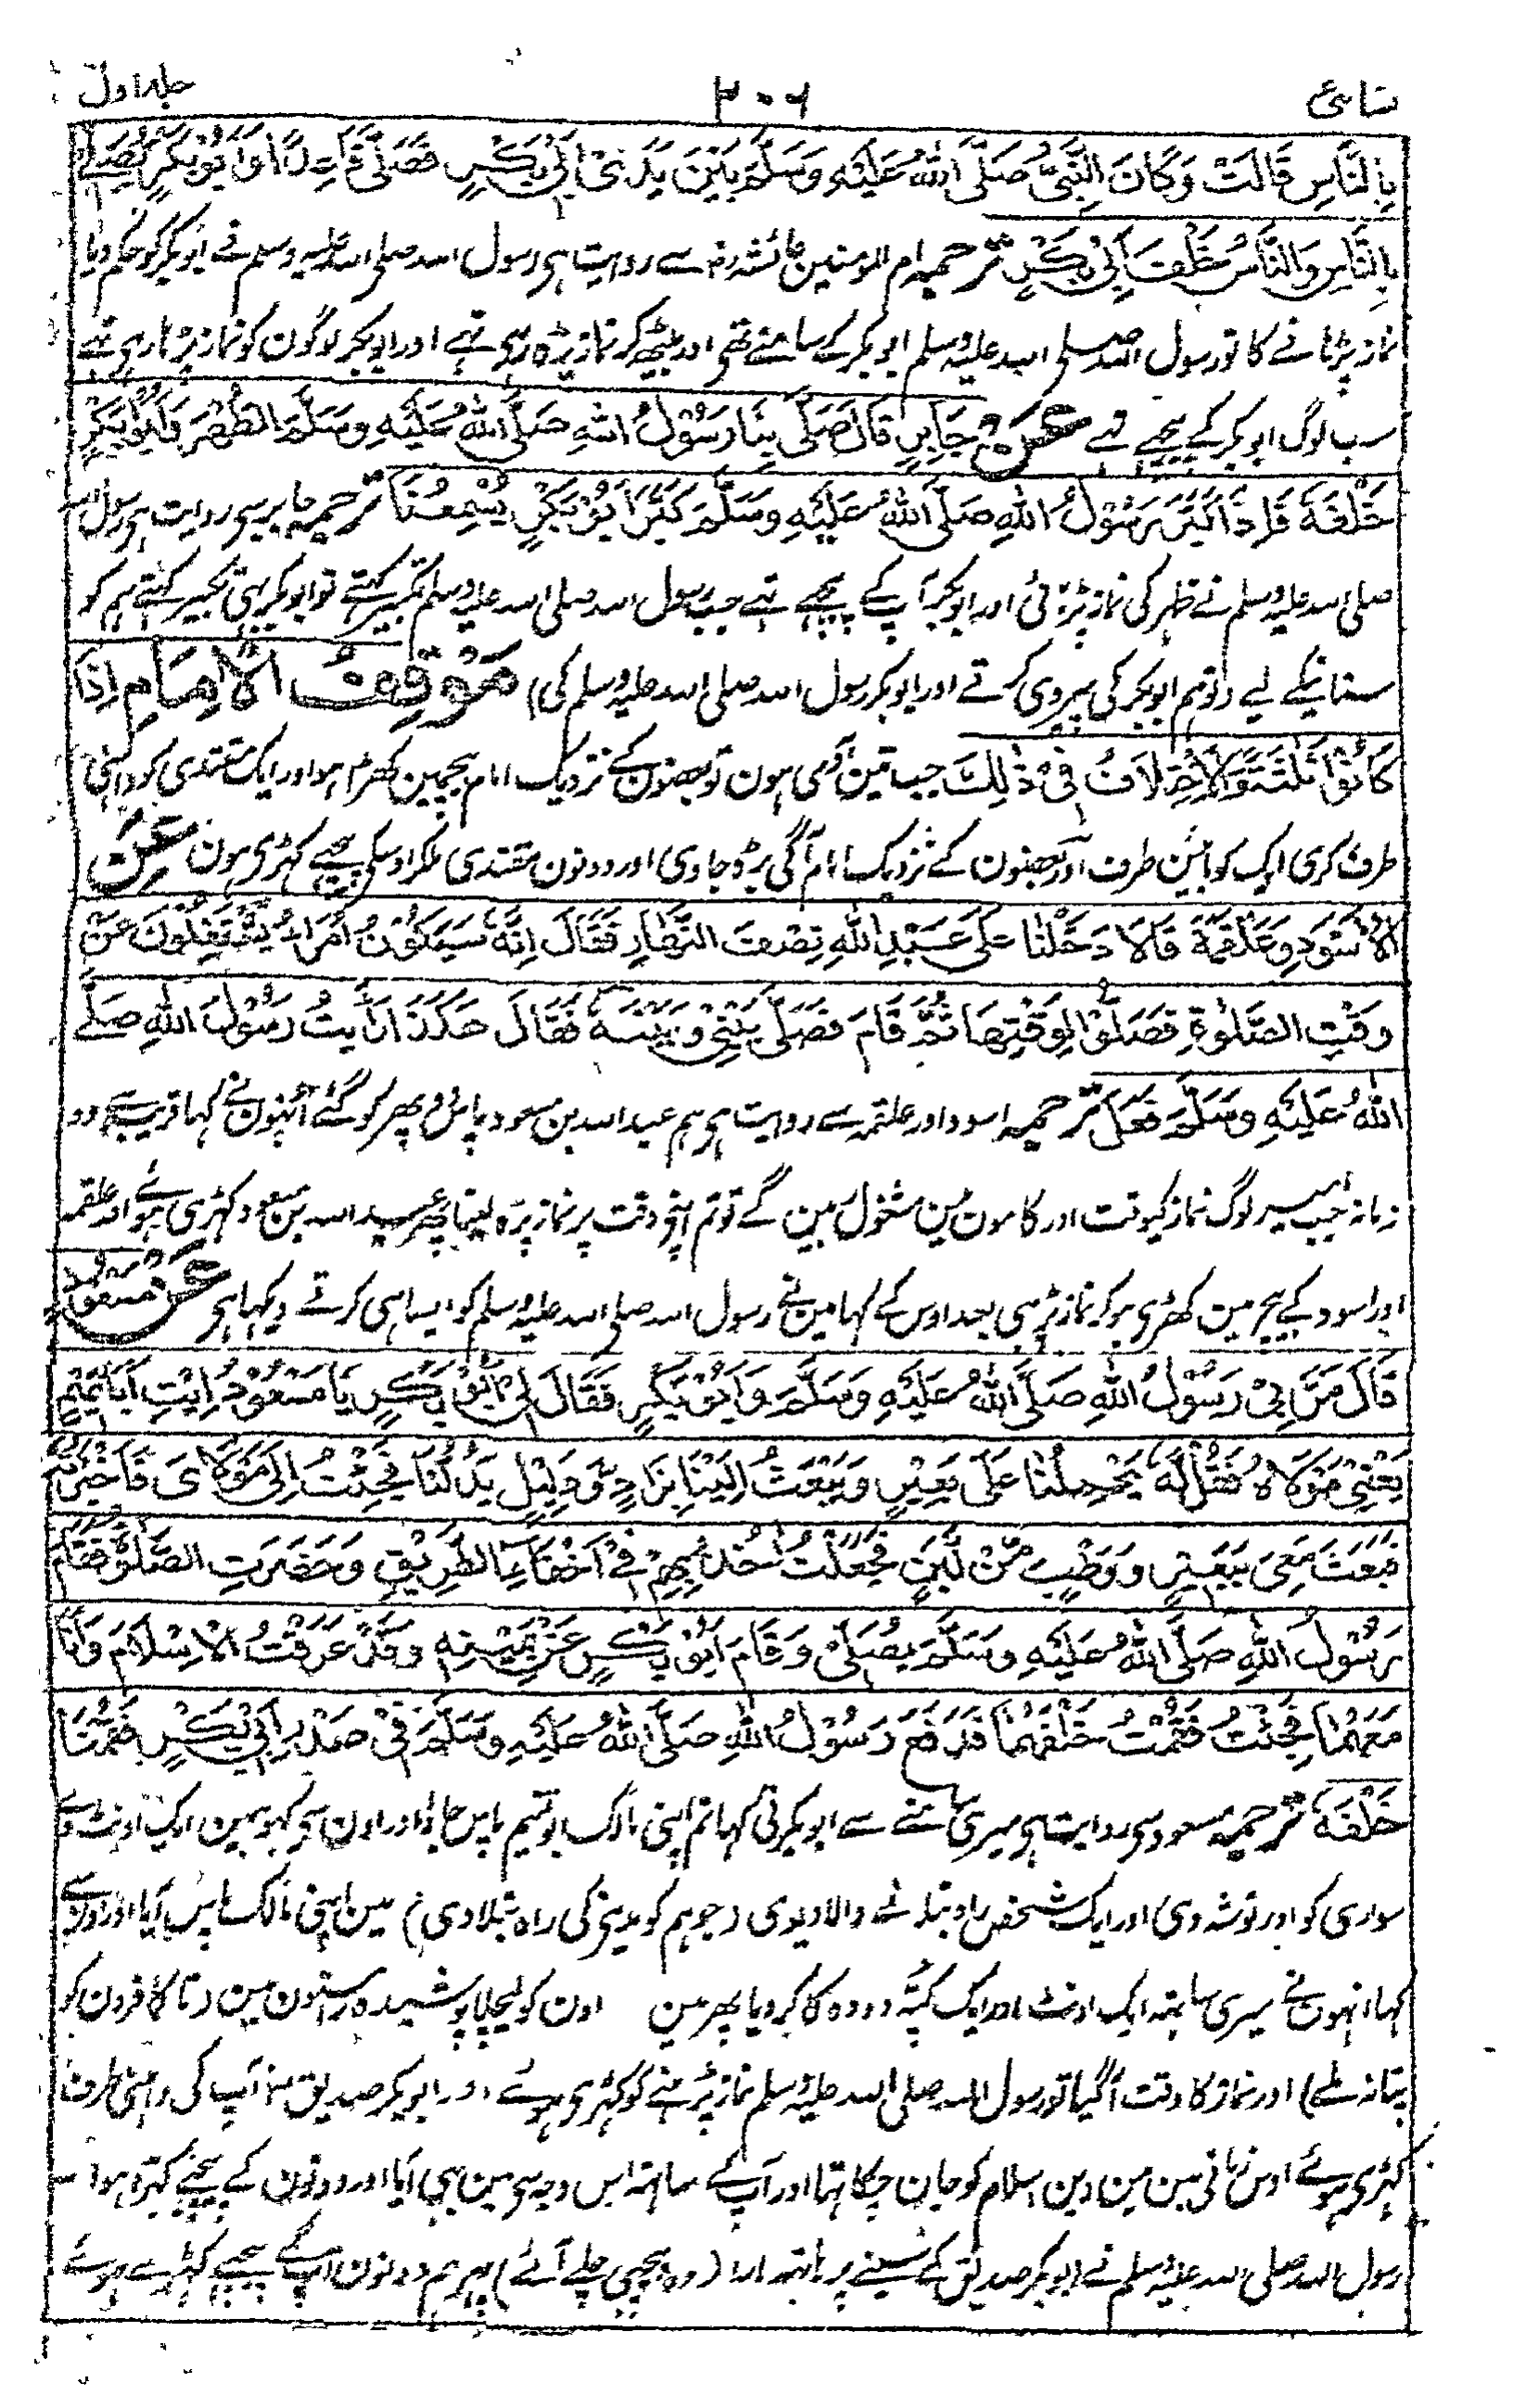 نسائی ۳۰۶ جلد اول
بِالنَّاسِ قَالَتْ وَكَانَ النَّبِيُّ صَلَّى اللهُ عَلَيْهِ وَسَلَّمَ بَيْنَ يَدَيْ اَبِيْ بَكْرٍ فَصَلّٰى قَاعِدًا وَاَبُوْبَكْرٍ يُصَلِّيْ
بِالنَّاسِ وَالنَّاسُ خَلْفَ اَبِيْ بَكْرٍ ترجمہ ام المومنین عائشہ رض سے روایت ہی رسول اللہ صلی اللہ علیہ وسلم نے ابوبکر کو حکم دیا
نماز پڑہانے کا تو رسول اللہ صلی اللہ علیہ وسلم ابوبکر کے سامنے تھی اور بیٹھ کر نماز پڑہ رہی تہے اور ابوبکر لوگون کو نماز پڑہا رہی تہے
سب لوگ ابوبکر کے پیچھے تہے عَنْ جَابِرٍ قَالَ صَلّٰى بِنَا رَسُوْلُ اللهِ صَلَّى اللهُ عَلَيْهِ وَسَلَّمَ الظُّهْرَ وَاَبُوْبَكْرٍ
خَلْفَهٗ فَاِذَا كَبَّرَ رَسُوْلُ اللهِ صَلَّى اللهُ عَلَيْهِ وَسَلَّمَ كَبَّرَ اَبُوْبَكْرٍ يُسْمِعُنَا ترجمہ جابر سی روایت ہی رسول اللہ
صلی اللہ علیہ وسلم نے ظہر کی نماز پڑہائی اور ابوبکر آپ کے پیچھے تہے جب رسول اللہ صلی اللہ علیہ وسلم تکبیر کہتے تو ابوبکر بہی تکبیر کہتے ہم کو
سنانیکے لیے (تو ہم ابوبکر کی پیروی کرتے اور ابوبکر رسول اللہ صلی اللہ علیہ وسلم کی) مَوْقِفُ الْاِمَامِ اِذَا
كَانُوْا ثَلٰثَةً وَالْاِخْتِلَافُ فِيْ ذٰلِكَ جب تین آدمی ہون تو بعضون کے نزدیک امام بیچمین کھڑا ہو اور ایک مقتدی کو داہنی
طرف کری ایک کو بائین طرف اور بعضون کے نزدیک امام آگی بڑہ جاوی اور دونون مقتدی ملکر اوسکی پیچھے کہڑی ہون عَنِ
الْاَسْوَدِ وَعَلْقَمَةَ قَالَا دَخَلْنَا عَلٰى عَبْدِ اللهِ نِصْفَ النَّهَارِ فَقَالَ اِنَّهٗ سَيَكُوْنُ اُمَرَاءُ يَشْتَغِلُوْنَ عَنْ
وَقْتِ الصَّلٰوةِ فَصَلُّوْا لِوَقْتِهَا ثُمَّ قَامَ فَصَلّٰى بَيْنِيْ وَبَيْنَهٗ فَقَالَ هٰكَذَا رَاَيْتُ رَسُوْلَ اللهِ صَلَّى
اللهُ عَلَيْهِ وَسَلَّمَ فَعَلَ ترجمہ اسود اور علقمہ سے روایت ہی ہم عبداللہ بن مسعود پاس دو پھر کو گئے اُنہون نے کہا قریب ہے وہ
زمانہ جب امیر لوگ نماز کیوقت اور کامون مین مشغول ہین گے تو تم اپنی وقت پر نماز پڑہ لینا پھر عبداللہ بن مسعود کہڑی ہوئے اور علقمہ
اور اسود کے بیچ مین کھڑی ہوکر نماز پڑہی بعد اوس کے کہا مین نے رسول اللہ صلی اللہ علیہ وسلم کو ایسا ہی کرتے دیکہا ہی عَنْ مَسْعُوْدٍ
قَالَ مَرَّ بِيْ رَسُوْلُ اللهِ صَلَّى اللهُ عَلَيْهِ وَسَلَّمَ وَاَبُوْبَكْرٍ فَقَالَ لِيْ اَبُوْبَكْرٍ يَا مَسْعُوْدُ اِيْتِ اَبَا تَمِيْمٍ
يَعْنِيْ مَوْلَاهُ فَقُلْ لَهٗ يَحْمِلْنَا عَلٰى بَعِيْرٍ وَيَبْعَثُ اِلَيْنَا بِزَادٍ وَدَلِيْلٍ يَدُلُّنَا فَجِئْتُ اِلٰى مَوْلَايَ فَاَخْبَرْتُهٗ
فَبَعَثَ مَعِيَ بِبَعِيْرٍ وَوَطْبٍ مِّنْ لَّبَنٍ فَجَعَلْتُ اٰخُذُ بِهِمْ فِيْ اِخْفَاءِ الطَّرِيْقِ وَحَضَرَتِ الصَّلٰوةُ فَقَامَ
رَسُوْلُ اللهِ صَلَّى اللهُ عَلَيْهِ وَسَلَّمَ يُصَلِّيْ وَقَامَ اَبُوْبَكْرٍ عَنْ يَمِيْنِهٖ وَقَدْ عَرَفْتُ الْاِسْلَامَ وَاَنَا
مَعَهُمَا فَجِئْتُ فَقُمْتُ خَلْفَهُمَا فَدَفَعَ رَسُوْلُ اللهِ صَلَّى اللهُ عَلَيْهِ وَسَلَّمَ فِيْ صَدْرِ اَبِيْ بَكْرٍ فَقُمْنَا
خَلْفَهٗ ترجمہ مسعود سی روایت ہی میری سامنے سے ابوبکر نی کہا تم اپنی مالک ابو تمیم پاس جاؤ اور اون سی کہو ہمین ایک اونٹ دے
سواری کو اور توشہ دی اور ایک شخص راہ بتلانے والا دیوی (جو ہم کو مدینی کی راہ بتلا دی) مین اپنی مالک پاس آیا اور اون سے
کہا انہون نے میری ساتہہ ایک اونٹ اور ایک کپّہ دودہ کا کر دیا پھر مین اون کو لیچلا پوشیدہ راستون مین (تا کافرون کو
پتا نہ ملے) اور نماز کا وقت آگیا تو رسول اللہ صلی اللہ علیہ وسلم نماز پڑہنے کو کہڑی ہوئے اور ابوبکر صدیق رض آپ کی داہنی طرف
کہڑی ہوئے اوس زمانی مین مین دین اسلام کو جان چکا تہا اور آپ کے ساتہہ تہا اس وجہ سی مین بہی آیا اور دونون کے پیچھے کہڑا ہوا -
رسول اللہ صلی اللہ علیہ وسلم نے ابوبکر صدیق کے سینے پر ہاتہہ مارا (وہ پیچہی چلے آئے) پہر ہم دونون آپ کے پیچھے کہڑے ہوئے